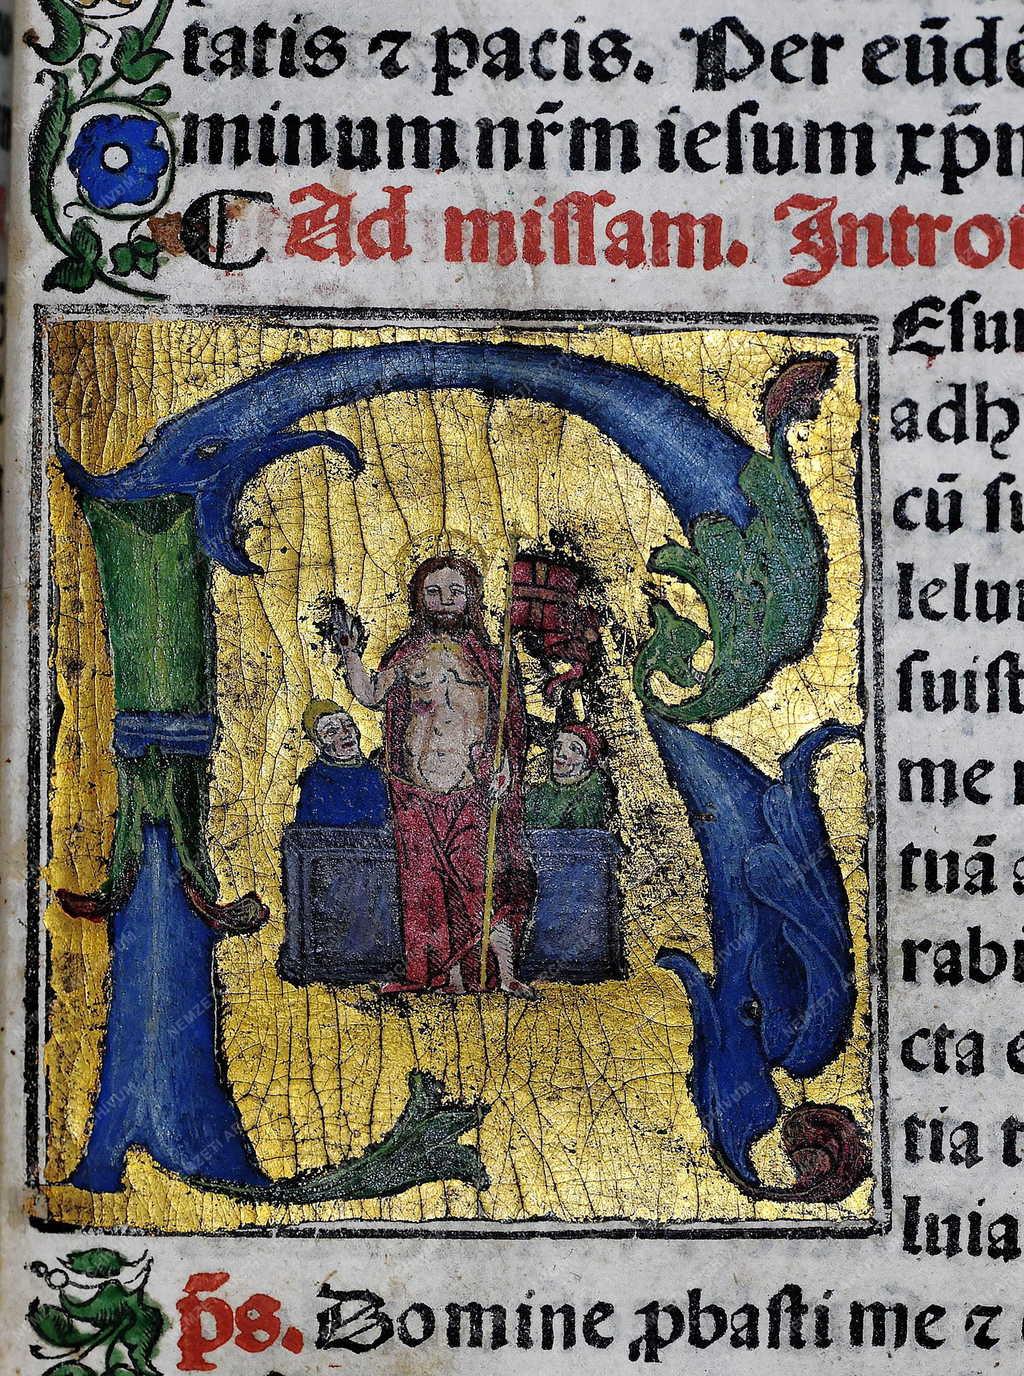 tatis ⁊ pacis. Per eūdē
minum nr̄m ieſum xp̄m
¶ Ad miſſam. Introi
R Eſur
adh
cū ſu
lelu
ſuiſt
me
tuā
rabi
cta e
tia t
luia
p̄s. Domine ꝓbaſti me ⁊